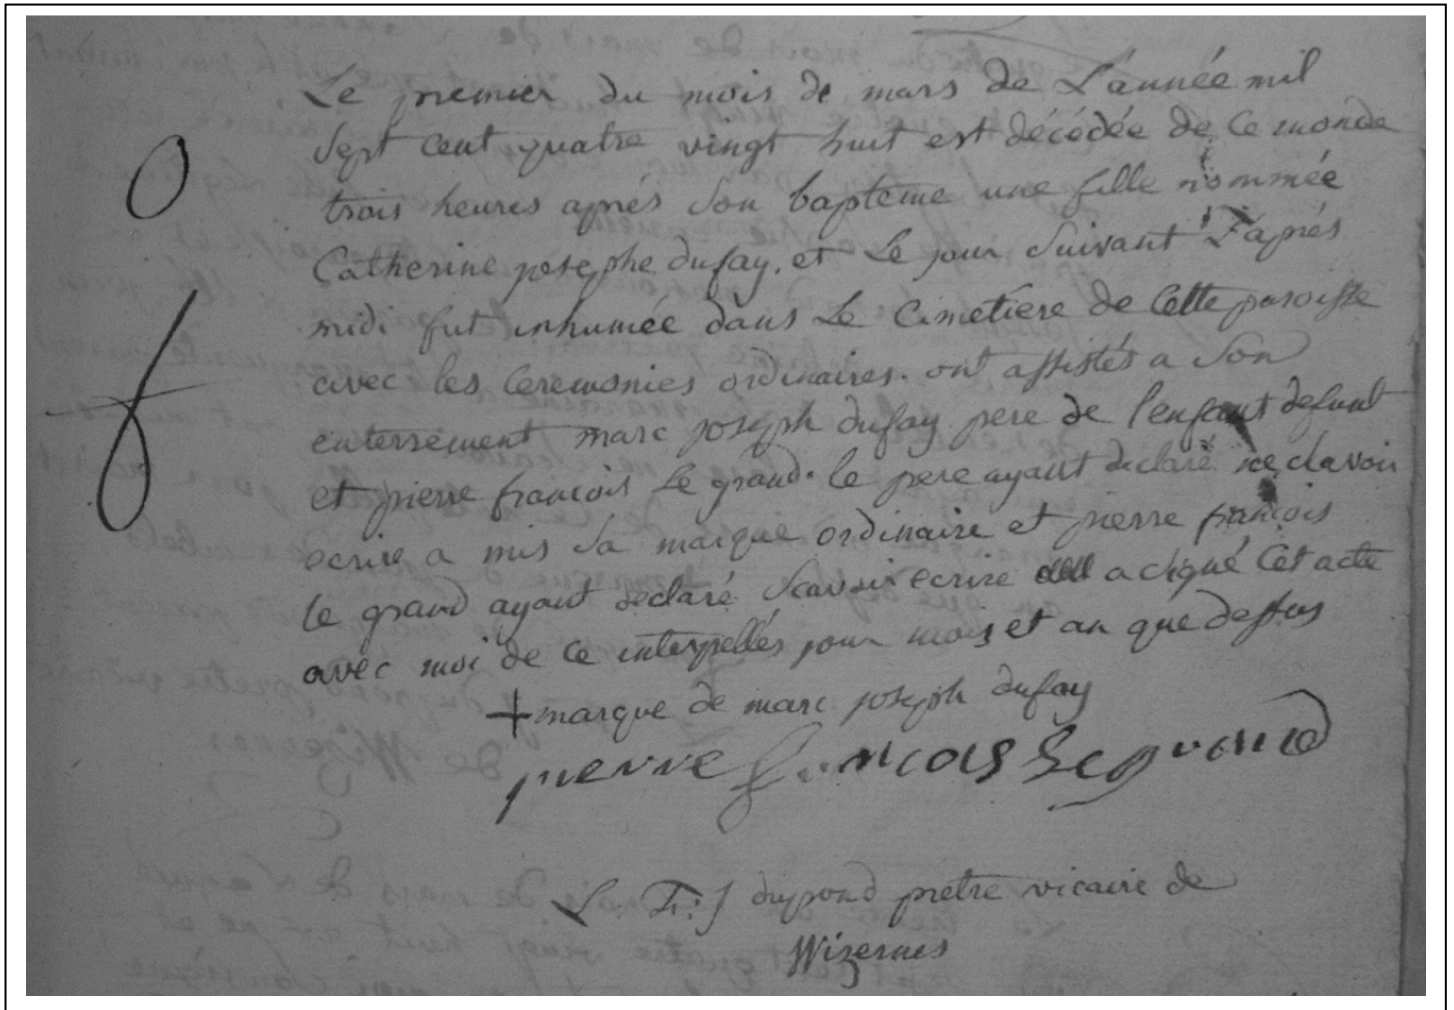 Le premier du mois de mars de L'année mil
sept cent quatre vingt huit est décédée de ce monde
trois heures aprés son baptême une fille nommée
Catherine josephe dufay, et Le jour suivant L'aprés
midi fut inhumée dans Le Cimetiere de Cette paroisse
avec les Ceremonies ordinaires. ont assistés a son
enterrement marc joseph dufay pere de l'enfant defunt
et pierre françois le grand. le pere ayant declaré ne sçavoir
ecrire a mis sa marque ordinaire et pierre françois
le grand ayant declaré sçavoir ecrire a signé Cet acte
avec moi de ce interpellés jour mois et an que dessus
+ marque de marc joseph dufay
pierre francois Legrand
L. F: J dupond pretre vicaire de
Wizernes